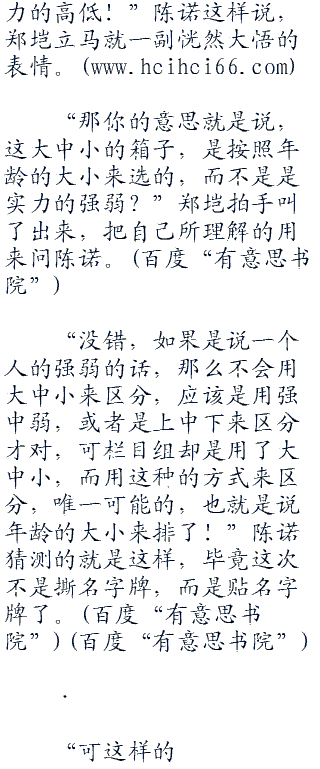 力的高低！”陈诺这样说，
郑垲立马就一副恍然大悟的
表情。(www.hcihci66.com)
“那你的意思就是说，
这大中小的箱子，是按照年
龄的大小来选的，而不是是
实力的强弱？”郑垲拍手叫
了出来，把自己所理解的用
来问陈诺。(百度“有意思书
院”)
“没错，如果是说一个
人的强弱的话，那么不会用
大中小来区分，应该是用强
中弱，或者是上中下来区分
才对，可栏目组却是用了大
中小，而用这种的方式来区
分，唯一可能的，也就是说
年龄的大小来排了！”陈诺
猜测的就是这样，毕竟这次
不是撕名字牌，而是贴名字
牌了。(百度“有意思书
院”)(百度“有意思书院”)
.
“可这样的